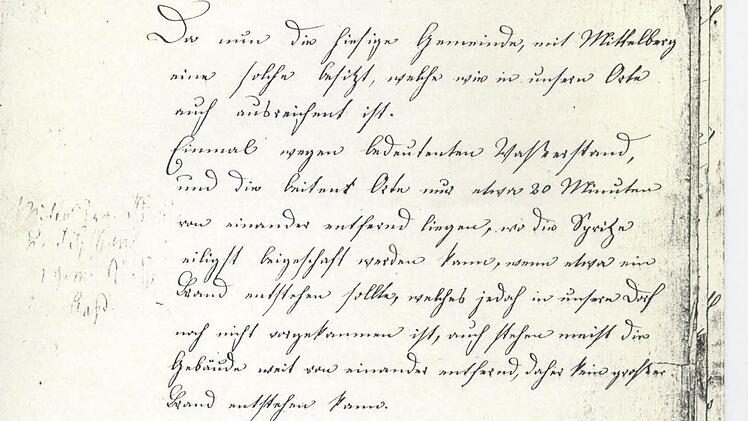 Da nun die hiesige Gemeinde, mit Mittelberg
eine solche besitzt, welche wie in unsern Orte
auch ausreichent ist.
Einmal wegen bedeutenten Waßerstand,
und die beiten Orte nur etwa 20 Minuten
von einander entfernd liegen, wo die Spritze
eiligst beigeschaft werden kann, wenn etwa ein
Brand entstehen sollte, welches jedoch in unsern Dorf
noch nicht vorgekammen ist, auch stehen meist die
Gebäude weit von einander entfernd, daher kein großer
Brand entstehen kann.